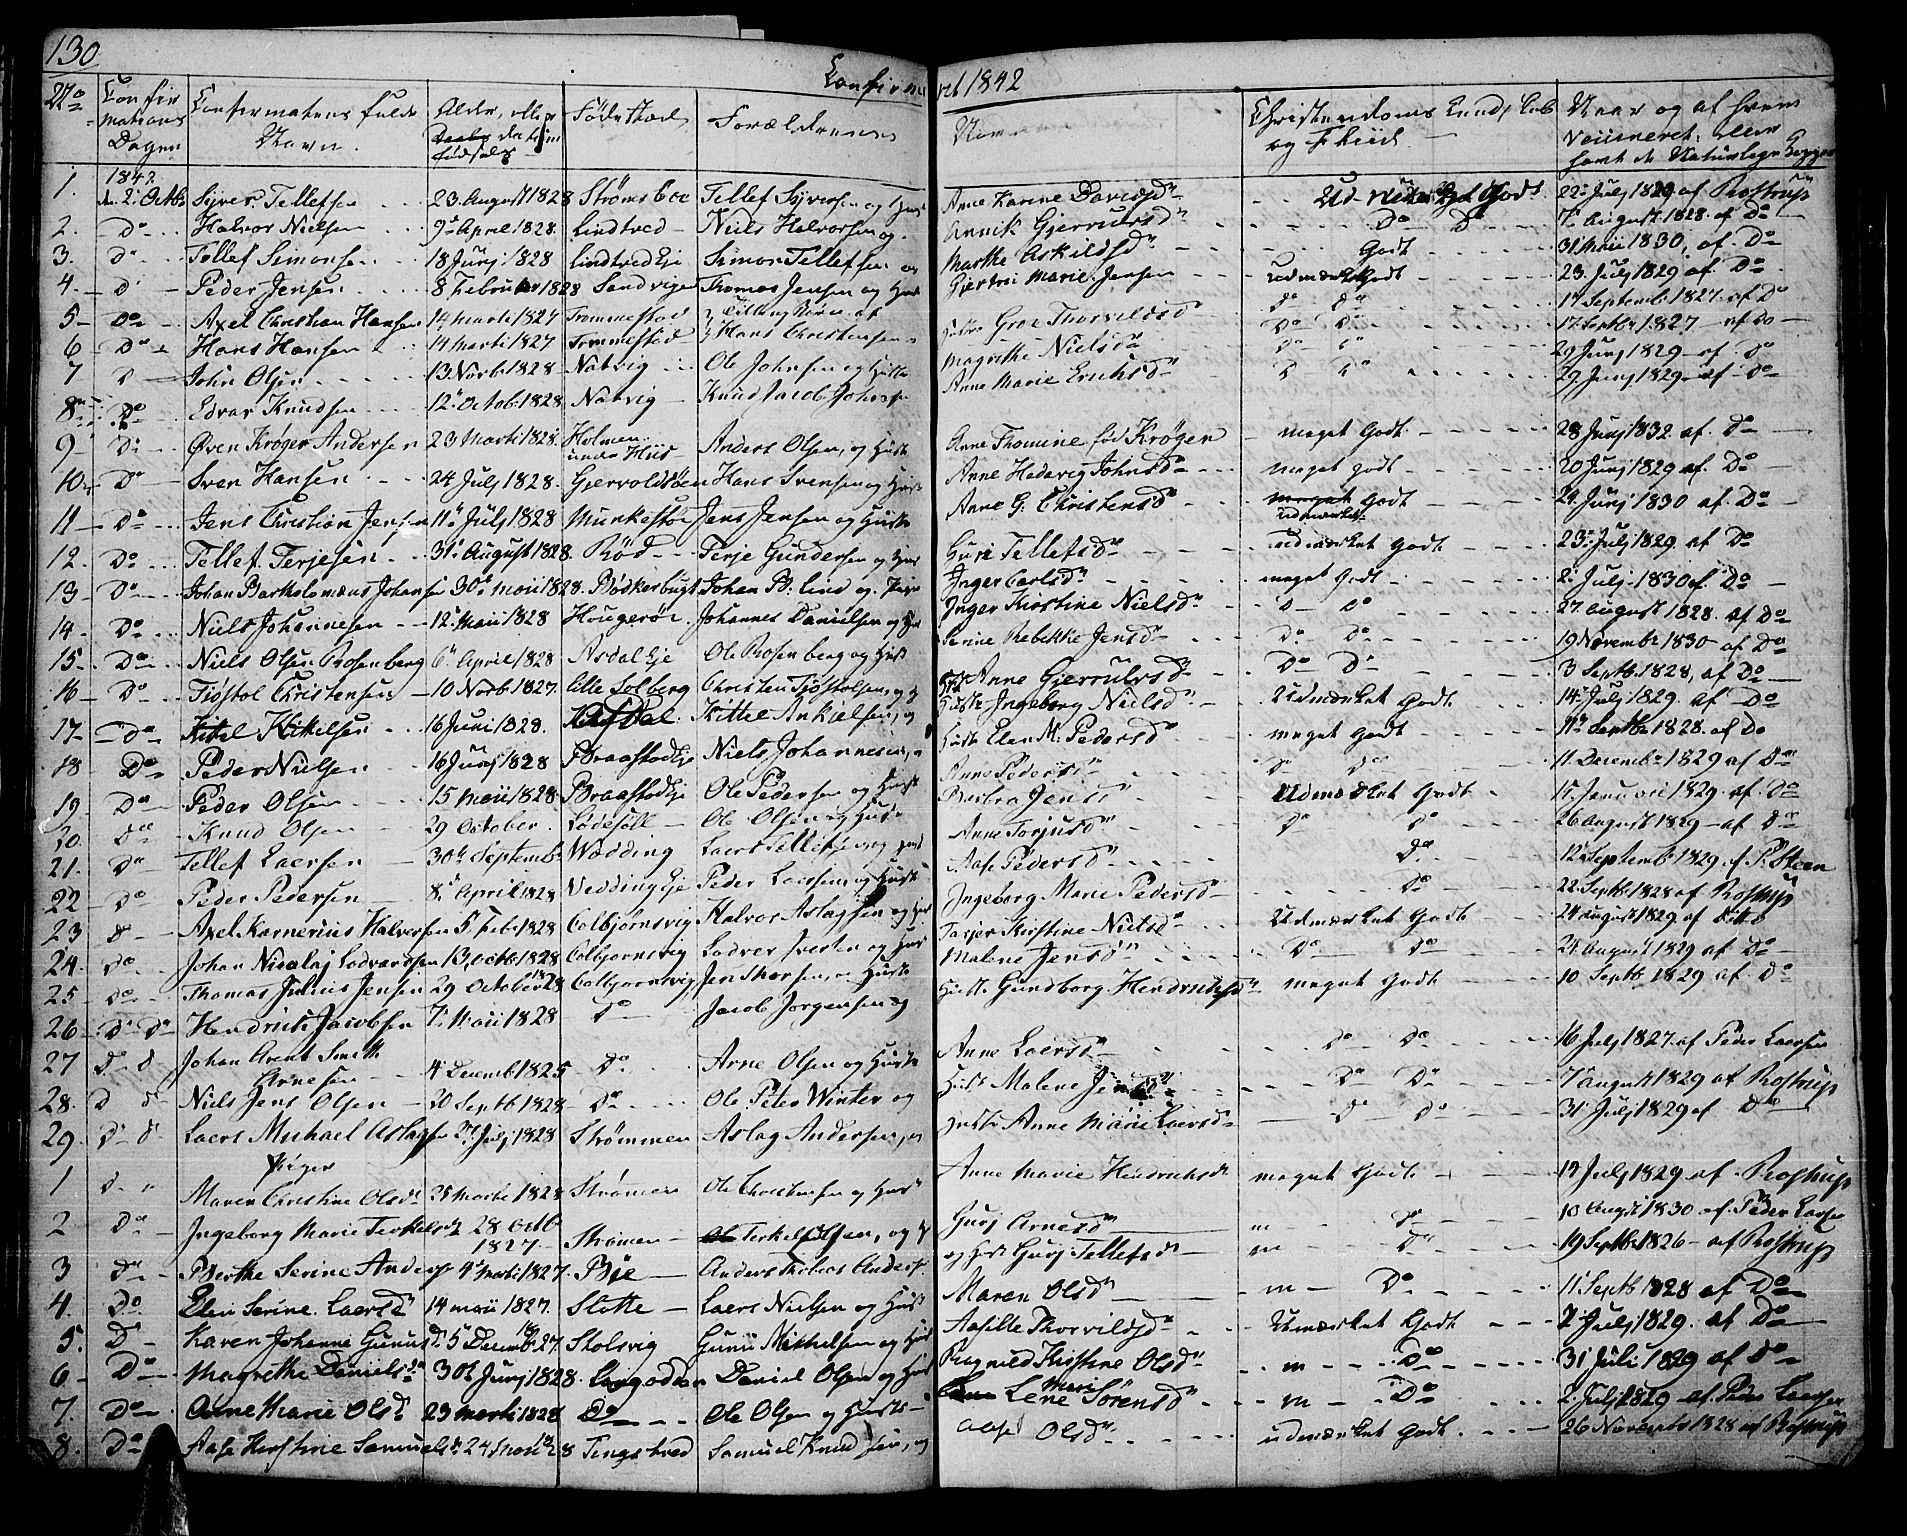 130
Confirmeret 1842
No
Confirmations Dagen
Confirmatens fulde Navn.
Alder, eller Daabs datum fødsels
Fødestæd
Forældrenes Navn
Christendoms Kundskab og Fliid
Naar og af hvem vacineret, eller havt de Naturlige Kopper
1. 1842 d. 2. Octb Syver Tellefsen 23 August 1828 Strømsboe Tellef Syversen og Hust Anne Karine Davidsd Udmærket Godt 22 Julj 1829 af Rostrup
2. Do Halvor Nielsen 9 April 1828 Lindtved Niels Halvorsen og Annik Gjerruldsd Do Do 7 August 1828 af Do
3. Do Tellef Simonsen 18 Junj 1828 Lindtved Eje Simon Tellefsen og Marthe Askildsd Godt 31 Maii 1830, af Do
4 Do Peder Jensen 8 Februar 1828 Sandvigen Thomas Jensen og Hust Gjertru Marie Jensen udmærket Godt 23 Julj 1829 af Do
5 Do Axel Christian Hansen 14 Marti 1827 Trommestad Hustr Groe Thorvildsd Do Do 17 Septemb 1827 af Do
6 Do Hans Hansen 14 Marti 1827 Trommestad Hans Christensen Magrethe Nielsd Do Do 17 Septb 1827 af Do
7 D John Olsen 13 Novb 1828 Natvig Ole Johnsen og Hust Anne Marie Erichsd D D 29 Junj 1829 af Do
8 Do Edvar Knudsen 12 Octob 1828 Natvig Knud Jacob Johnss 29 Junj 1829 af Do
9 Do Øven Krøger Andersen 23 Marti 1828 Holmen under Hiis Anders Olsen, og Hust Anne Thomine fød Krøger meget Godt 28 Junj 1832 af Do
10 Do Sven Hansen 24 Julj 1828 Gjervoldsøen Hans Svensen og Hust Anne Hedevig Johnsd meget godt 20 Junj 1829 af Do
11 Do Jens Christian Jensen 11 Julj 1828 Munkestøe Jens Jensen og Hust Anne G. Christensd meget udmærket Godt 24 Junj 1830 af Do
12 Do Tellef Terjesen 31 August 1828 Rød Terje Gundersen og Hust Guri Tellefsd udmærket Godt 23 Julj 1829 af Do
13 Do Johan Bartholomæus Johansen 30 Maii 1828 Bødkerbugt Johan B. Lind og Pige Inger Carlsd meget Godt 2 Julj 1830 af Do
14 Do Niels Johannesen 12 Maii 1828 Hougerøe Johannes Danielsen og Hust Inger Kirstine Nielsd D Do 27 August 1828 af Do
15 Do Niels Olsen Rosenberg 6 April 1828 Asdal Eje Ole Rosenberg og Hust Serine Rebekke Jensd Do Do 19 Novembr 1830 af Do
16 Do Tiøstol Christensen 10 Novb 1827 Lille Solberg Christen Tiøstolsen og Hust Anne Gjerrulsd Do Do 3 Septb 1828, af Do
17 Do Kitel Kittelsen 16 Juni 1828 Kittel Ankielsen, og Hust Ingeborg Nielsd Udmærket Godt 14 Julj 1829 af Do
18 Do Peder Nielsen 16 Junj 1828 Braastad Eje Niels Johannesen, Hust Elen M. Pedersd meget Godt 11 Septb 1828 af Do
19 Do Peder Olsen 15 Maii 1828 Braastad Eje Ole Pedersen og Hust Anne Pedersd Do Do 11 Decemb 1829 af Do
20 Do Knud Olsen 29 October Lødesøll Ole Olsen og Hust Barbra Jensd Udmærket Godt 17 Januarii 1829 af Do
21 Do Tellef Laersen 30 Septemb Wedding Laers Tellefsen og Hust Anne Torjusd Do Do 26 August 1829 af Do
22 Do Peder Pedersen 8 April 1828 Vedding Eje Peder Larssen og Hust Aase Pedersd Do 12 Septemb 1829 af P. Steen
23 D Axel Kornerius Halversen 5 Feb 1828 Colbjørnsvig Halvor Aslagsen og Hust Ingeborg Marie Pedersd Do 22 Septb 1828 af Rostrup
24. Do Johan Nicolaj Lodvardsen 13 Octb 1828 Colbjørnsvig Lodver Iversen og Hust Torjer Kirstine Nielsd Udmærket Godt 24 August 1829 af Ditto
25 Do Thomas Julius Jensen 29 October 1828 Colbjørnsvig Jens Thorsen, og Hustr Malene Jensd Do Do 24 August 1829 af Do
26 Do Do Hendrich Jacobsen 7 Maii 1828 Do Jacob Jørgensen og Hustr Gundborg Hendrichsd meget Godt 10 Septb 1829 af Do
27 Do D Johan Arent Smith Arnesen 4 Decemb 1825 Do Arne Olsen og Hust Anne Laersd Do Do 16 Julj 1827 af Peder Laersen
28. D D Niels Jens Olsen 20 Septb 1828 Do Ole Peter Winter og Hust Malene Jensd Do Do 7 August 1829 af Rostrup
29. Do D Laers Michael Aslagsen 27 Julj 1828 Strømmen Aslag Andersen, og Hustr Anne Marie Laersd Do Do 31 Julj 1829 af Do
Piger
1 D Maren Christine Olsd 31 Marti 1828 Strømen Ole Christensen og Hust Anne Marie Hendrichsd meget Godt 17 Julj 1829 af Rostrup
2 Do Ingeborg Marie Terkelsd 28 Octb 1827 Strømen Terkel Olsen, og Hust Gurj Arnesd m Do 10 Augst 1830 af Peder Larsen
3 Do Berthe Serine Anders 4 Marti 1827 Bie Anders Thobias Anders og Hust Gurj Tellefsd m Do 19 Septb 1826 af Rostrup
4. Do Elen Serine Laersd 14 Maii 1827 Slotte Laers Nielsen og Hust Maren Olsd m Do 11 Septb 1828 af Do
5. D Karen Johanne Gunusd 5 Decemb 1827 Stølsvig Gunu Michelsen og Hust Aasille Thorvildsd Udmærket Godt 7 Julj 1829 af Do
6 Do Magrethe Danielsd 30 Junj 1828 Daniel Olsen og Hust Ragnild Kirstine Olsd m Do 31 Juli 1829 af Do
7. Do Anne Marie Olsd 29 Marti 1828 Do Ole Olsen og Hustr Lene Marie Sørensd m Do 2 Julj 1829 af Peder Laersen
8. Do Aase Kirstine Samuelsd 24 Maii 1828 Tingstved Samuel Knudsen, og Aase Olsd udmærket Godt 26 November 1828 af Rostrup